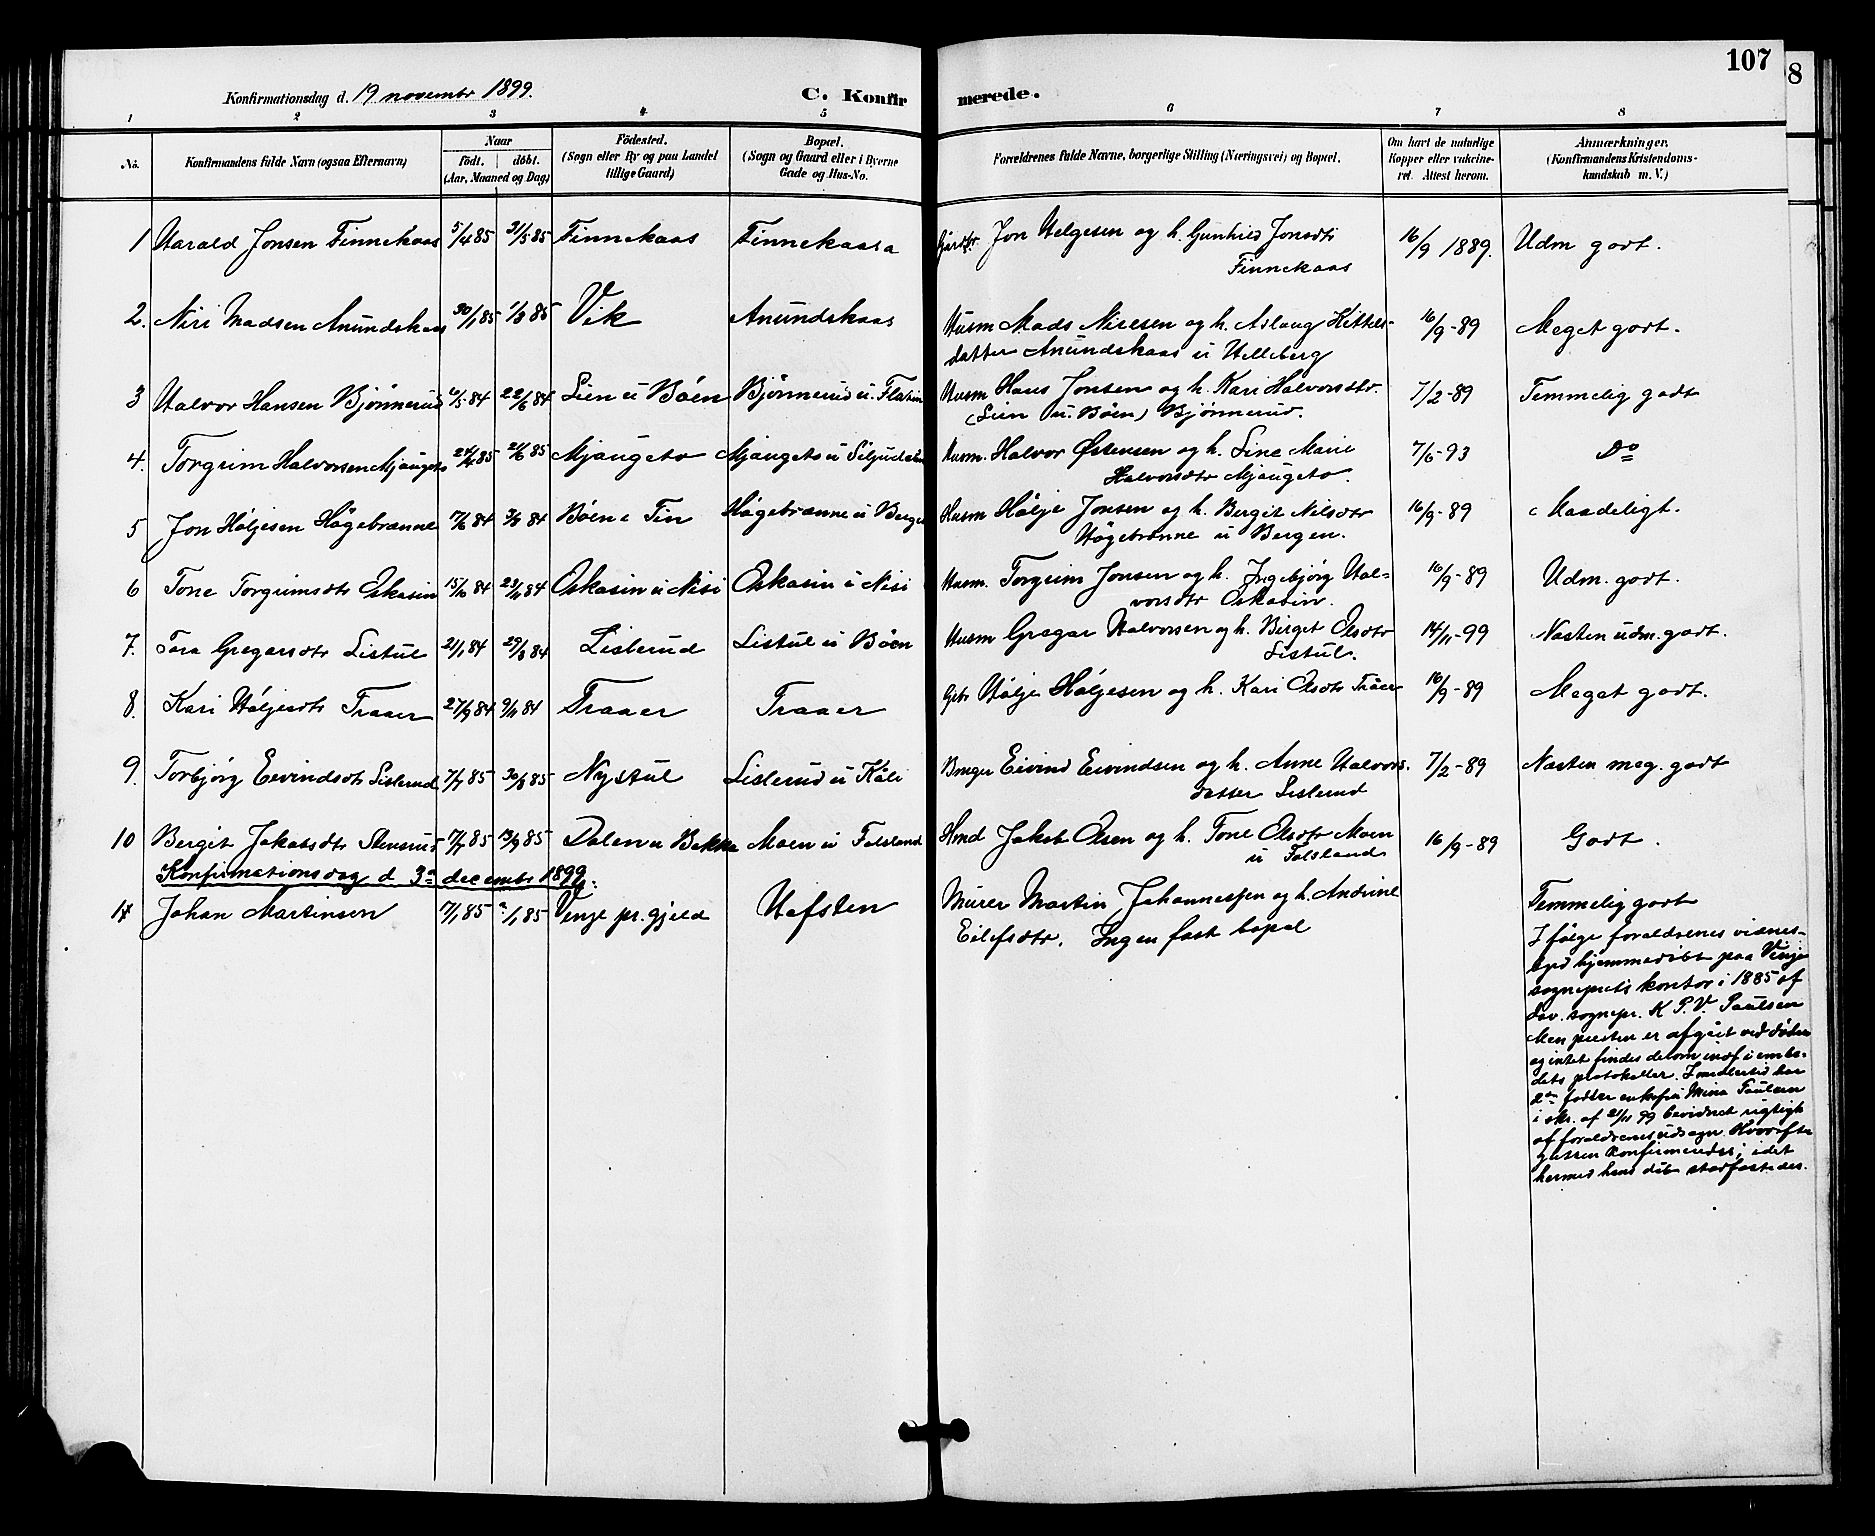 107
8
Konfirmationsdag d. 19 novembr 1899. C. Konfirmerede.
1 2 3 4 5 6 7 8
No. Konfirmandens fulde Navn (ogsaa Efternavn) Naar födt. döbt. (Aar, Maaned og Dag) Födested. (Sogn eller By og paa Landet tillige Gaard) Bopæl. (Sogn og Gaard eller i Byerne Gade og Hus-No. Forældrenes fulde Navne, borgerlige Stilling (Næringsvei) og Bopæl. Om havt de naturlige Kopper eller vakcineret. Attest herom. Anmærkninger. (Konfirmandens Kristendomskundskab m. V.)
1 Harald Jonsen Finnekaas 5/4 85 31/5 85 Finnekaas Finnekaasa Jon Helgesen og h. Gunhild Jonsdtr 16/9 1889. Udm godt.
Finnekaas
2. Niri Madsen Anundskaas 30/1 85 1/3 85 Vik Anundskaas Husm Mads Niresen og h. Aslaug Kittels- 16/9-89 Meget godt.
datter Anundskaas u Helleberg
3 Halvor Hansen Bjönnerud 6/5 84 22/6 84 Lien u Böen Bjönnerud u. Flatin Husm Hans Jonsen og h. Kari Halvorsdtr. 7/2-89 Temmelig godt
(Lien u. Böen) Bjönnerud.
4. Torgrim Halvorsen Mjaugeto 24/4 85 21/6 85 Mjaugeto Mjaugeto u Siljudalen Husm. Halvor Østensen og h. Line Marie 7/6-93 Do
Halvorsdtr Mjaugeto.
5 Jon Höljesen Högebrænne 17/6 84 3/8 84 Böen i Tin Högebrænne u Bergen Husm Hölje Jonsen og h. Bergit Nilsdtr 16/9-89 Maadeligt.
Högebrænne u Bergen.
6 Tone Torgrimsdtr Oskasin 15/10 84 23/11 84 Oskasin u Nisi Oskasin u Nisi Husm. Torgrim Jonsen og h. Ingebjörg Hal- 16/9-89 Udm. godt.
vorsdtr Oskasin.
7. Tara Gregarsdtr Listul 21/1 84 29/3 84 Lislerud Listul u Böen Husm Gregar Halvorsen og h. Birget Olsdtr 14/11-99 Næsten udm. godt.
Listul.
8. Kari Höljesdtr Traaer 27/9 84 9/11 84 Traaer Traaer Gbr Hölje Höljesen og h. Kari Olsdtr Traaer 16/9-89 Meget godt.
9. Torbjörg Eivindsdtr Lislerud 7/7 85 30/8 85 Nystul Lislerud u Kåli Bruger Eivind Eivindsen og h. Anne Halvors- 7/2-89 Næsten meg. godt
datter Lislerud
10 Bergit Jakobsdtr Stensrud 17/7 85 13/9 85 Dalen u Bakka Moen u Falsland Hmd Jakob Olsen og h. Tone Olsdtr Moen 16/9-89 Godt.
u Falsland
Konfirmationsdag d 3e decembr 1899.
Johan Martinsen 17/1 85 /1 85 Vinje pr. gjeld Hafsten Murer Martin Johannessen og h. Andrine Temmelig godt
Eilefsdtr. Ingen fast bopæl
I fölge forældrenes vidnes-
byrd hjemmedöbt paa Vinje
sogneprests kontor i 1885 af
dav. sognepr. K P. V. Paulsen
Men presten er afgået ved döden
og intet findes derom indf i embe-
dets protokoller. Imidlertid har
2den fadder enkefru Mina Paulsen
i skr. af 21/11 99 bevidnet rigtigh
af forældrenes udsagn. Hvorefter
gutten konfirmeredes, idet
hermed hans dåb stadfæstedes.